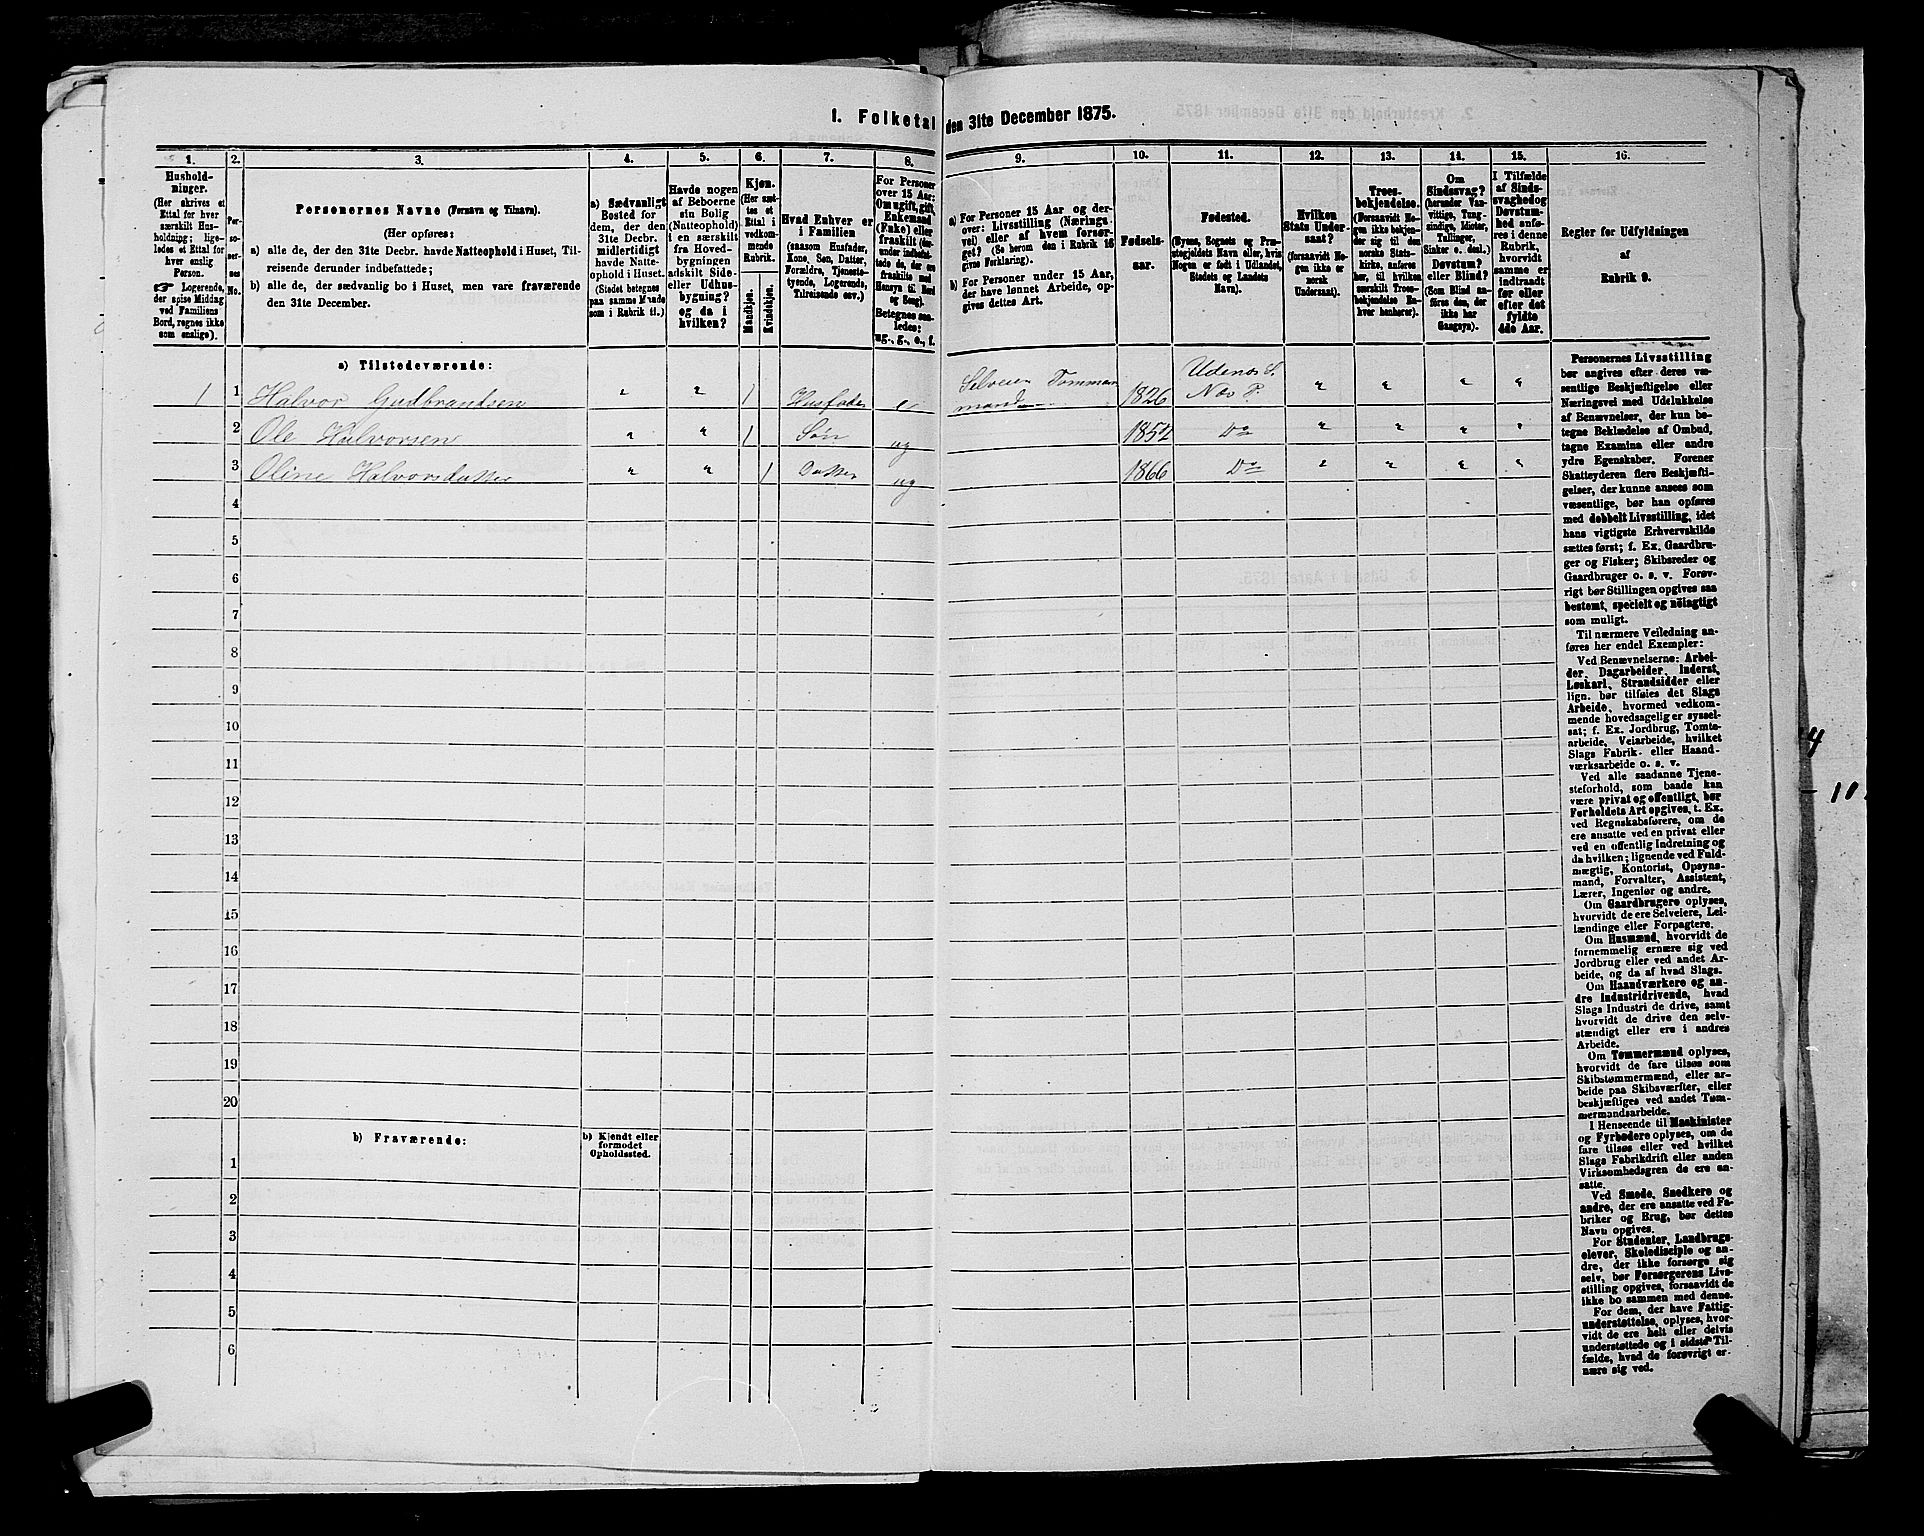 1. Folketal den 31te December 1875.
1. 2. 3. 4. 5. 6. 7. 8. 9. 10. 11. 12. 13. 14. 15. 16.
Hushold-
ninger.
(Her skrives et
Ettal for hver
særskilt Hus-
holdning; lige-
ledes et Ettal for
hver enslig
Person.
☞ Logerende,
der spise Middag
ved Familiens
Bord, regnes ikke
som enslige).
Per-
so-
ner-
nes
No.
Personernes Navne (Fornavn og Tilnavn).
(Her opføres:
a) alle de, der den 31te Decbr. havde Natteophold i Huset, Til-
reisende derunder indbefattede;
b) alle de, der sædvanlig bo i Huset, men vare fraværende
den 31te December.
a) Sædvanligt
Bosted for
dem, der den
31te Decbr.
midlertidigt
havde Natte-
ophold i Huset.
(Stedet betegnes
paa samme Maade
som i Rubrik 11.)
Havde nogen
af Beboerne
sin Bolig
(Natteophold)
i en særskilt
fra Hoved-
bygningen
adskilt Side-
eller Udhus-
bygning?
og da i
hvilken?
Kjøn.
(Her sæt-
tes et
Ettal i
vedkom-
mende
Rubrik.
Mandkjøn.
Kvindekjøn.
Hvad Enhver er
i Familien
(saasom Husfader,
Kone, Søn, Datter,
Forældre, Tjeneste-
tyende, Logerende,
Tilreisende osv.)
For Personer
over 15 Aar:
Om ugift, gift,
Enkemand
(Enke) eller
fraskilt (der-
under indbefat-
tede de, der ere
fraskilte med
Hensyn til Bord
og Seng).
Betegnes saa-
ledes:
ug., g., e., f.
a) For Personer 15 Aar og der-
over: Livsstilling (Nærings-
vei) eller af hvem forsør-
get? (Se herom den i Rubrik 16
givne Forklaring).
b) For Personer under 15 Aar,
der have lønnet Arbeide, op-
gives dettes Art.
Fødsels-
aar.
Fødested.
(Byens, Sognets og Præ-
stegjeldets Navn eller, hvis
Nogen er født i Udlandet,
Stedets og Landets
Navn).
Hvilken
Stats Under-
saat?
(forsaavidt No-
gen ikke er
norsk
Undersaat).
Troes-
bekjendelse.
(Forsaavidt No-
gen ikke bekjen-
der sig til den
norske Stats-
kirke, anføres
her, til hvilken
særskilt Troes-
bekjendelse En-
hver henhører).
Om
Sindssvag?
(herunder Van-
vittige, Tung-
sindige, Idioter,
Tullinger,
Sinker o. desl.)
Døvstum?
eller Blind?
(Som Blind an-
føres den, der
ikke har
Gangsyn).
I Tilfælde
af Sinds-
svaghed og
Døvstum-
hed anfø-
res i denne
Rubrik,
hvorvidt
samme er
indtraadt
før eller
efter det
fyldte
4de Aar.
Regler for Udfyldningen
af
Rubrik 9.
a) Tilstedeværende:
1 1 Halvor Gudbrandsen 1 Husfader e Selveier Tømmermand 1826 Udenes S. Næs P.
2 Ole Halvorsen 1 Søn ug 1854 Do
3 Oline Halvorsdatter 1 Datter ug 1866 Do
4
5
6
7
8
9
10
11
12
13
14
15
16
17
18
19
20
b) Fraværende:
b) Kjendt eller
formodet
Opholdssted.
1
2
3
4
5
6
Personernes Livsstilling
bør angives efter deres væ-
sentlige Beskjæftigelse eller
Næringsvei med Udelukkelse
af Benævnelser, der kun be-
tegne Beklædelse af Ombud,
tagne Examina eller andre
ydre Egenskaber. Forener
Skatteyderen flere Beskjæfti-
gelser, der kunne ansees som
væsentlige, bør han opføres
med dobbelt Livsstilling, idet
hans vigtigste Erhvervskilde
sættes først; f. Ex. Gaardbru-
ger og Fisker; Skibsreder og
Gaardbruger o. s. v. Forøv-
rigt bør Stillingen opgives saa
bestemt, specielt og nøiagtigt
som muligt.
Til nærmere Veiledning an-
føres her endel Exempler:
Ved Benævnelserne: Arbei-
der, Dagarbeider, Inderst,
Løskarl, Strandsidder eller
lign. bør tilføies det Slags
Arbeide, hvormed vedkom-
mende hovedsagelig er syssel-
sat; f. Ex. Jordbrug, Tomte-
arbeide, Veiarbeide, hvilket
Slags Fabrik- eller Haand-
værksarbeide o. s. v.
Ved alle saadanne Tjene-
steforhold, som baade kan
være privat og offentligt, bør
Forholdets Art opgives, t. Ex.
ved Regnskabsførere, om de
ere ansatte ved en privat eller
ved en offentlig Indretning og
da hvilken; lignende ved Fuld-
mægtig, Kontorist, Opsyns-
mand, Forvalter, Assistent,
Lærer, Ingeniør og andre.
Om Gaardbrugere oplyses,
hvorvidt de ere Selveiere, Lei-
lændinge eller Forpagtere.
Om Husmænd, hvorvidt de
fornemmelig ernære sig ved
Jordbrug eller ved andet Ar-
beide, og da af hvad Slags.
Om Haandværkere og an-
dre Industridrivende, hvad
Slags Industri de drive, samt
hvorvidt de drive den selv-
stændigt eller ere i andres
Arbeide.
Om Tømmermænd oplyses,
hvorvidt de fare tilsøs som
Skibstømmermænd, eller ar-
beide paa Skibsværfter, eller
beskjæftiges ved andet Tøm-
mermandsarbeide.
I Henseende til Maskinister
og Fyrbødere oplyses, om de
fare tilsøs eller ved hvilket
Slags Fabrikdrift eller anden
Virksomhedsgren de ere an-
satte.
Ved Smede, Snedkere og
andre, der ere ansatte ved Fa-
briker og Brug, bør dettes
Navn opgives.
For Studenter, Landbrugs-
elever, Skoledisciple og an-
dre, der ikke forsørge sig
selv, bør Forsørgerens Livs-
stilling opgives, forsaavidt de
ikke bo sammen med denne.
For dem, der have Fattig-
understøttelse, oplyses, hvor-
vidt de ere helt eller delvis
understøttede og i sidste Til-
fælde, hvad de forøvrigt er-
nære sig ved.